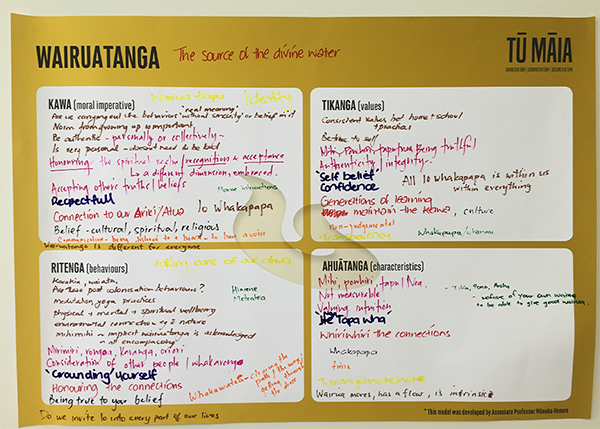 WAIRUATANGA
The source of the divine water
TŪ MĀIA
KAWA (moral imperative)
Wairua tapu
Identity
'real meaning'
Are we carrying out the behaviours 'without sincerity' or belief in it
Norm from growing up is important
Be authentic - personally or collectively -
Is very personal - doesnt need to be told
Honouring the spiritual realm / recognition & acceptance
a different dimension, embraced.
Accepting others truths / beliefs
Respectfull
Connection to our Ariki/Atua
Io Whakapapa
Belief - cultural, spiritual, religious
Communication - being listened to & heard - to have a voice
Wairuatanga is different for everyone
TIKANGA (values)
Consistent values b/w home & school
+ practices
Be true to self
Being truthful
Authenticity integrity
"Self belief"
Confidence
All Io whakapapa is within us
within everything
Generations of learning
maintain the kawa, culture
Non-judgemental
Transparency
Whakapapa/Whenua
RITENGA (behaviours)
taking care of our
Karakia, waiata,
Are these post colonisation behaviours?
Himene
meditation, yoga practices
physical + mental + spiritual wellbeing
environmental connection eg: nature
mihimihi - implicit wairuatanga is acknowledged
all encompassing
Mirimiri, rongoa, Karanga, oriori
Consideration of other people / whakaronga
"Grounding yourself"
Honouring the connections
Being true to your belief
Whakawatea - clearing the
path / the way /
getting through
the door
Do we invite Io into every part of our lives
AHUĀTANGA (characteristics)
Mihi, powhiri, tapu / Noa.
Not measurable
Valuing intuition
- welfare of your own wairua
to be able to give good wairua.
"Te Tapa Wha"
Whiriwhiri the connections
Whakapapa
time
Wairua moves, has a flow, is intrinsic
* This model was developed by Associate Professor Mānuka Hēnare